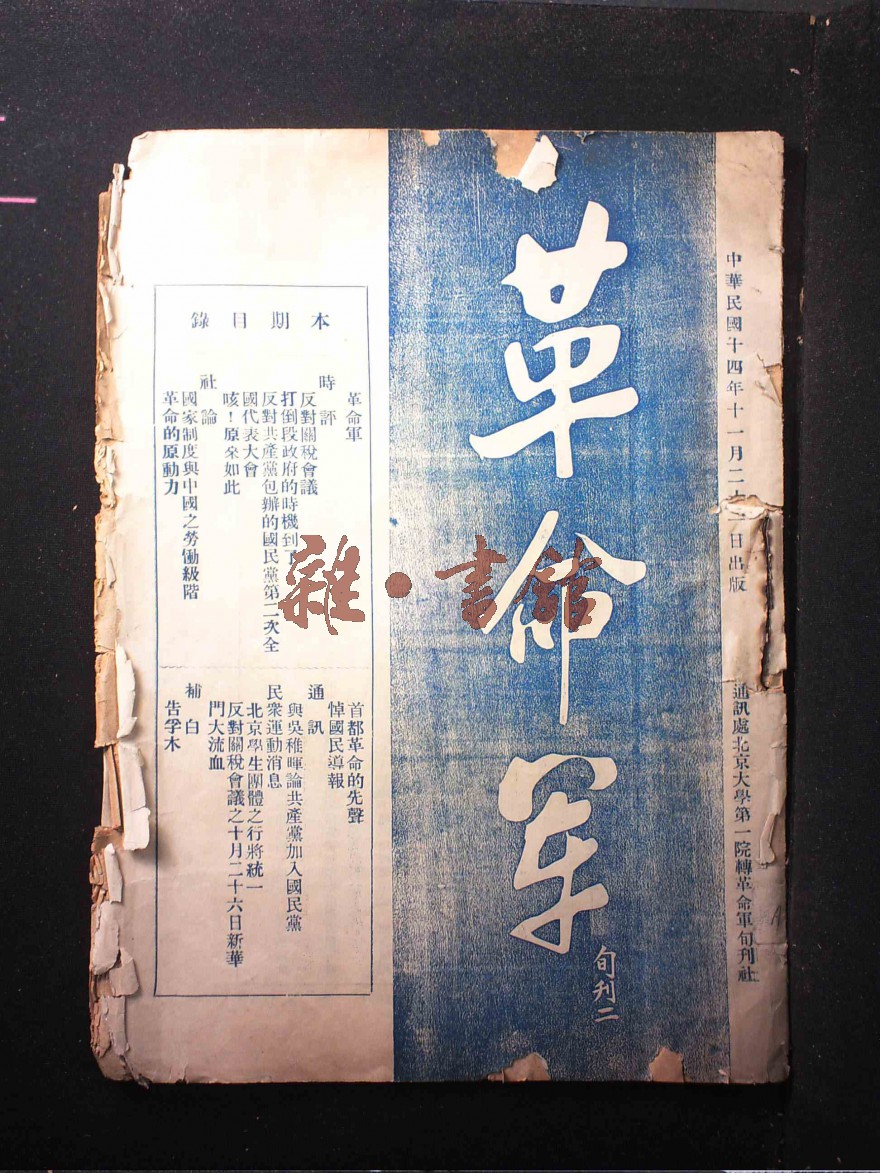 中華民國十四年十一月二十一日出版
通訊處北京大學第一院轉革命軍旬刊社
革命军
旬刊二
本期目錄
革命軍
時評
反對關稅會議
打倒段政府的時機到了
反對共產黨包辦的國民黨第二次全
國代表大會
咳！原來如此
社論
國家制度與中國之勞働級階
革命的原動力
首都革命的先聲
悼國民導報
通訊
與吳稚暉論共產黨加入國民黨
民衆運動消息
北京學生團體之行將統一
反對關稅會議之十月二十六日新華
門大流血
補白
告孚木
雜·書館